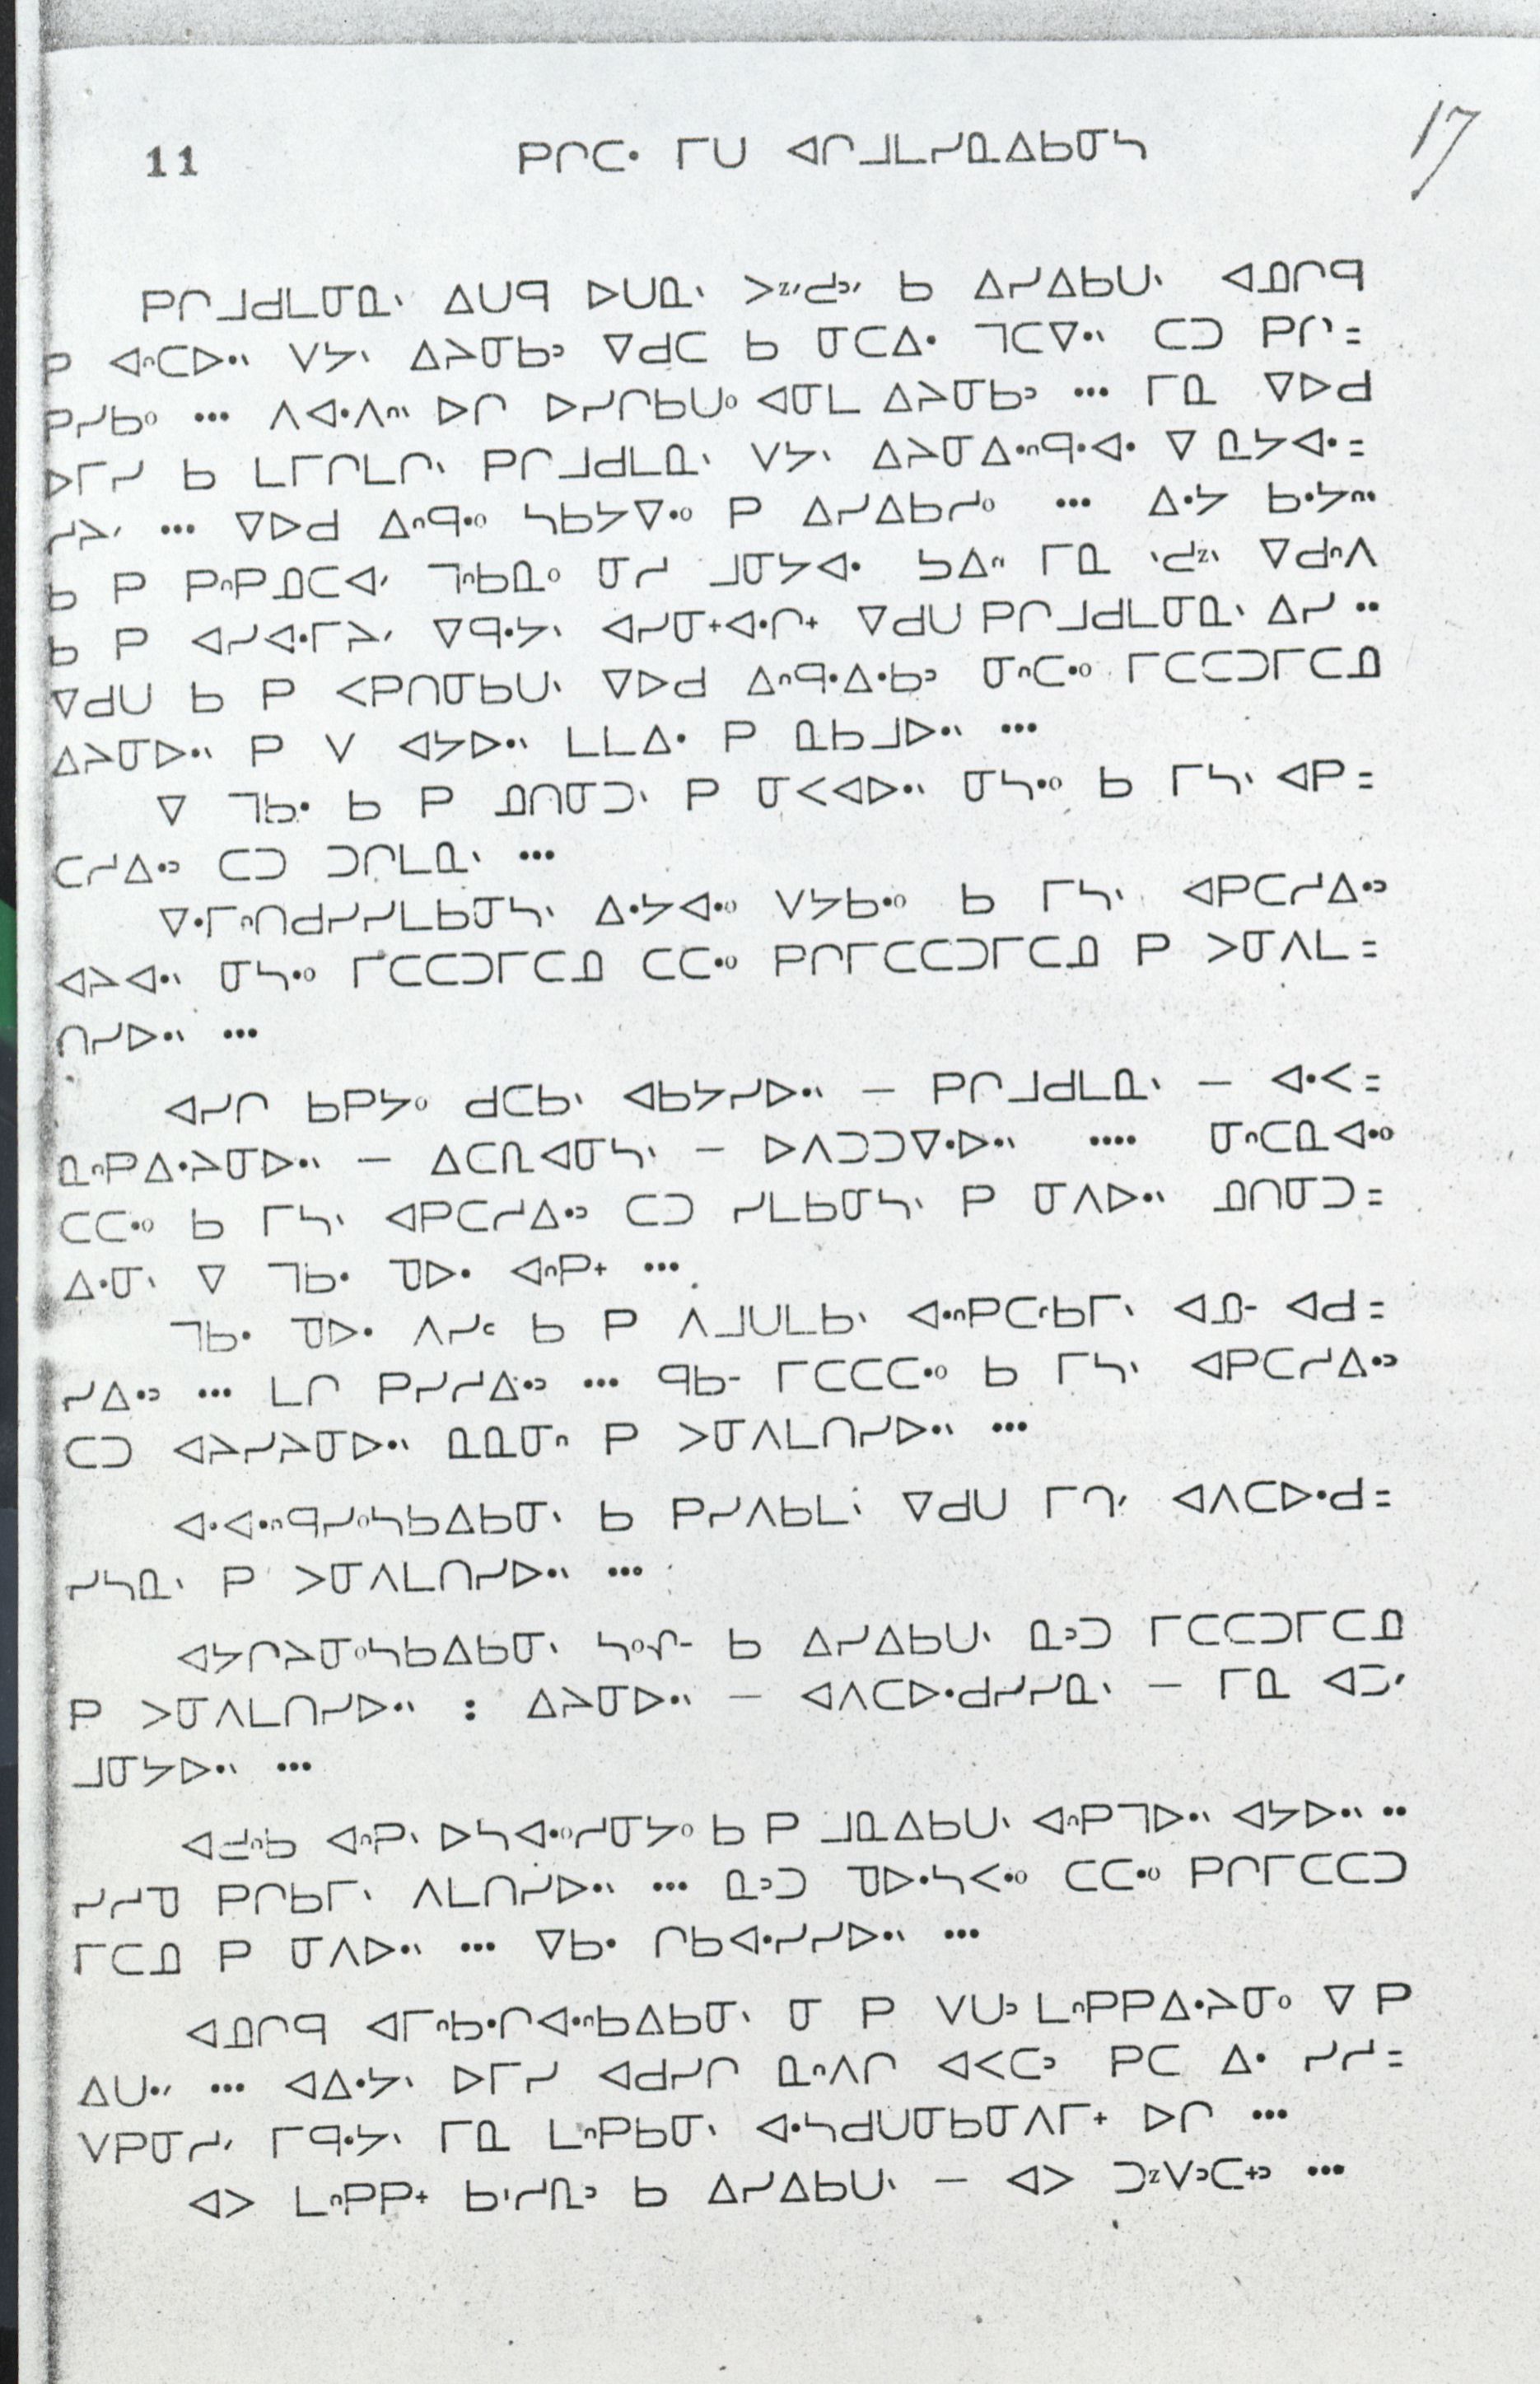 11 ᑭᒋᑕᐧ ᒥᑌ ᐊᒋᒧᒪᓯᓇᐃᑲᓂᓴ 17
ᑭᒋᒧᑯᒪᓂᓇᐠ ᐃᑌᑫ ᐅᑌᓇᐠ ᑲ ᐃᓯᐃᑲᑌᐠ ᐊᓄᒋᑫ
ᑭ ᐊᐢᑕᐅᐧᐠ ᐯᔭᐠ ᐃᔨᓂᑲᐣ ᐁᑯᑕ ᑲ ᓂᑕᐃᐧ ᒣᑕᐁᐧᐠ ᑕᑐ ᑭᒋ =
ᑭᓯᑲᐤ ••• ᐱᐊᐧᐱᐢᐠ ᐅᒋ ᐅᓯᒋᑲᑌᐤ ᐊᓂᒪ ᐃᔨᓂᑲᐣ ••• ᒥᓇ ᐁᐅᑯ
ᐅᒥᓯ ᑲ ᒪᒥᒋᒪᒋᐠ ᑭᒋᒧᑯᒪᓇᐠ ᐯᔭᐠ ᐃᔨᓂᐃᐧᐢᑫᐧᐊᐧ ᐁ ᓇᔭᐊᐧ =
ᓯᔨᐟ ••• ᐁᐅᑯ ᐃᐢᑫᐧᐤ ᓴᑲᔭᐁᐧᐤ ᑭ ᐃᓯᐃᑲᓱᐤ ••• ᐃᐧᔭ ᑲᐧᔭᐢᐠ
ᑲ ᑭ ᑭᐢᑭᓄᑕᐊᐟ ᒣᐢᑲᓇᐤ ᓂᓱ ᒧᓂᔭᐊᐧ
ᑲ ᑭ ᐊᓯᐊᐧᒥᔨᐟ ᐁᑫᐧᔭᐠ ᐊᓯᓂᐩᐊᐧᒋᐩ ᐁᑯᑌ ᑭᒋᒧᑯᒪᓂᓇᐠ ᐃᓯ ••
ᐁᑯᑌ ᑲ ᑭ ᐸᑭᑎᓂᑲᑌᐠ ᐁᐅᑯ ᐃᐢᑫᐧᐃᐧᑲᐣ ᓂᐢᑕᐧᐤ ᒥᑕᑕᑐᒥᑕᓄ
ᐃᔨᓂᐅᐧᐠ ᑭ ᐯ ᐊᔭᐅᐧᐠ ᒪᒪᐃᐧ ᑭ ᓇᑲᒧᐅᐧᐠ •••
ᐁ ᒣᑲᐧ ᑲ ᑭ ᓄᑎᓂᑐᐠ ᑭ ᓂᐸᐊᐅᐧᐠ ᓂᓴᐧᐤ ᑲ ᒥᓴᐠ ᐊᑭ =
ᑕᓱᐃᐧᐣ ᑕᑐ ᑐᒋᒪᓇᐠ •••
ᐁᐧᒥᐢᑎᑯᓯᓯᒪᑲᓂᓴᐠ ᐃᐧᔭᐊᐧᐤ ᐯᔭᑲᐧᐤ ᑲ ᒥᓴᐠ ᐊᑭᑕᓱᐃᐧᐣ
ᐊᔨᐊᐧᐠ ᓂᓴᐧᐤ ᒥᑕᑕᑐᒥᑕᓄ ᑕᑕᐧᐤ ᑭᒋᒥᑕᑕᑐᒥᑕᓄ ᑭ ᐳᓂᐱᒪ =
ᑎᓯᐅᐧᐠ •••
ᐊᓯᒋ ᑲᑭᔭᐤ ᑯᑕᑲᐠ ᐊᑲᔭᓯᐅᐧᐠ — ᑭᒋᒧᑯᒪᓇᐠ — ᐊᐧᐸ =
ᓇᐢᑭᐃᐧᔨᓂᐅᐧᐠ — ᐃᑕᓇᐊᓂᓴᐠ — ᐅᐱᑐᑐᐁᐧᐅᐧᐠ •••• ᓂᐢᑕᓇᐊᐧᐤ
ᑕᑕᐧᐤ ᑲ ᒥᓴᐠ ᐊᑭᑕᓱᐃᐧᐣ ᑕᑐ ᓯᒪᑲᓂᓴᐠ ᑭ ᓂᐱᐅᐧᐠ ᓄᑎᓂᑐ =
ᐃᐧᓂᐠ ᐁ ᒣᑲᐧ ᑯᐅᐧ ᐊᐢᑭᐩ •••
ᒣᑲᐧ ᑯᐅᐧ ᐱᓯᒼ ᑲ ᑭ ᐱᒧᑌᒪᑲᐠ ᐊᐧᐢᑭᑕᐟᑲᒥᐠ ᐊᓄᐨ ᐊᑯ =
ᓯᐃᐧᐣ ••• ᒪᒋ ᑭᓯᓱᐃᐧᐣ ••• ᑫᑲᐨ ᒥᑕᑕᑕᐧᐤ ᑲ ᒥᓴᐠ ᐊᑭᑕᓱᐃᐧᐣ
ᑕᑐ ᐊᔨᓯᔨᓂᐅᐧᐠ ᓇᓇᓂᐢ ᑭ ᐳᓂᐱᒪᑎᓯᐅᐧᐠ •••
ᐊᐧᐊᐧᐢᑫᓯᐤᓴᑲᐃᑲᓂᐠ ᑲ ᑭᓯᐱᑲᒪᐠ ᐁᑯᑌ ᒥᒉᐟ ᐊᐱᑕᐅᐧᑯ =
ᓯᓴᓇᐠ ᑭ ᐳᓂᐱᒪᑎᓯᐅᐧᐠ •••
ᐊᔭᒋᔨᓂᐤᓴᑲᐃᑲᓂᐠ ᑲ ᐃᓯᐃᑲᑌᐠ ᓇᐣᑐ ᒥᑕᑕᑐᒥᑕᓄ
ᑭ ᐳᓂᐱᒪᑎᓯᐅᐧᐠ : ᐃᔨᓂᐅᐧᐠ — ᐊᐱᑕᐅᐧᑯᓯᓯᓇᐠ — ᒥᓇ ᐊᑐᐟ
ᒧᓂᔭᐅᐧᐠ •••
ᐊᓛᐢᑲ ᐊᐢᑭᐠ ᐅᓴᐊᐧᐤᓱᓂᔭᐤ ᑲ ᑭ ᒧᓇᐃᑲᑌᐠ ᐊᐢᑭᒣᐅᐧᐠ ᐊᔭᐅᐧᐠ ••
ᓯᓱᑯ ᑭᒋᑲᒥᐠ ᐱᒪᑎᓯᐅᐧᐠ ••• ᓇᐣᑐ ᑯᐅᐧᓴᐸᐧᐤ ᑕᑕᐧᐤ ᑭᒋᒥᑕᑕᑐ
ᒥᑕᓄ ᑭ ᓂᐱᐅᐧᐠ ••• ᐁᑲᐧ ᒋᑲᐊᐧᓯᓯᐅᐧᐠ •••
ᐊᓄᒋᑫ ᐊᒥᐢᑲᐧᒋᐊᐧᐢᑲᐃᑲᓂᐠ ᓂ ᑭ ᐯᑌᐣ ᒪᐢᑭᑭᐃᐧᔨᓂᐤ ᐁ ᑭ
ᐃᑌᐧᐟ ••• ᐊᐃᐧᔭᐠ ᐅᒥᓯ ᐊᑯᓯᒋ ᓇᐢᐱᒋ ᐊᐸᑕᐣ ᑭᑕ ᐃᐧ ᓯᓱ =
ᐯᑭᓂᓱᐟ ᒥᑫᐧᔭᐠ ᒥᓇ ᒪᐢᑭᑲᓂᐠ ᐊᐧᓴᑯᑌᓂᑲᓂᐱᒥᐩ ᐅᒋ •••
ᐊᐳ ᒪᐢᑭᑭᐩ ᑲ ᐃᓯᐃᑲᑌᐠ — ᐊᐳ •••